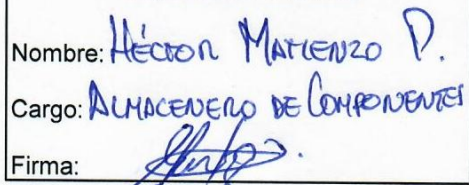 Nombre: HÉCTOR MATIENZO P.
Cargo: ALMACENERO DE COMPONENTES
Firma: